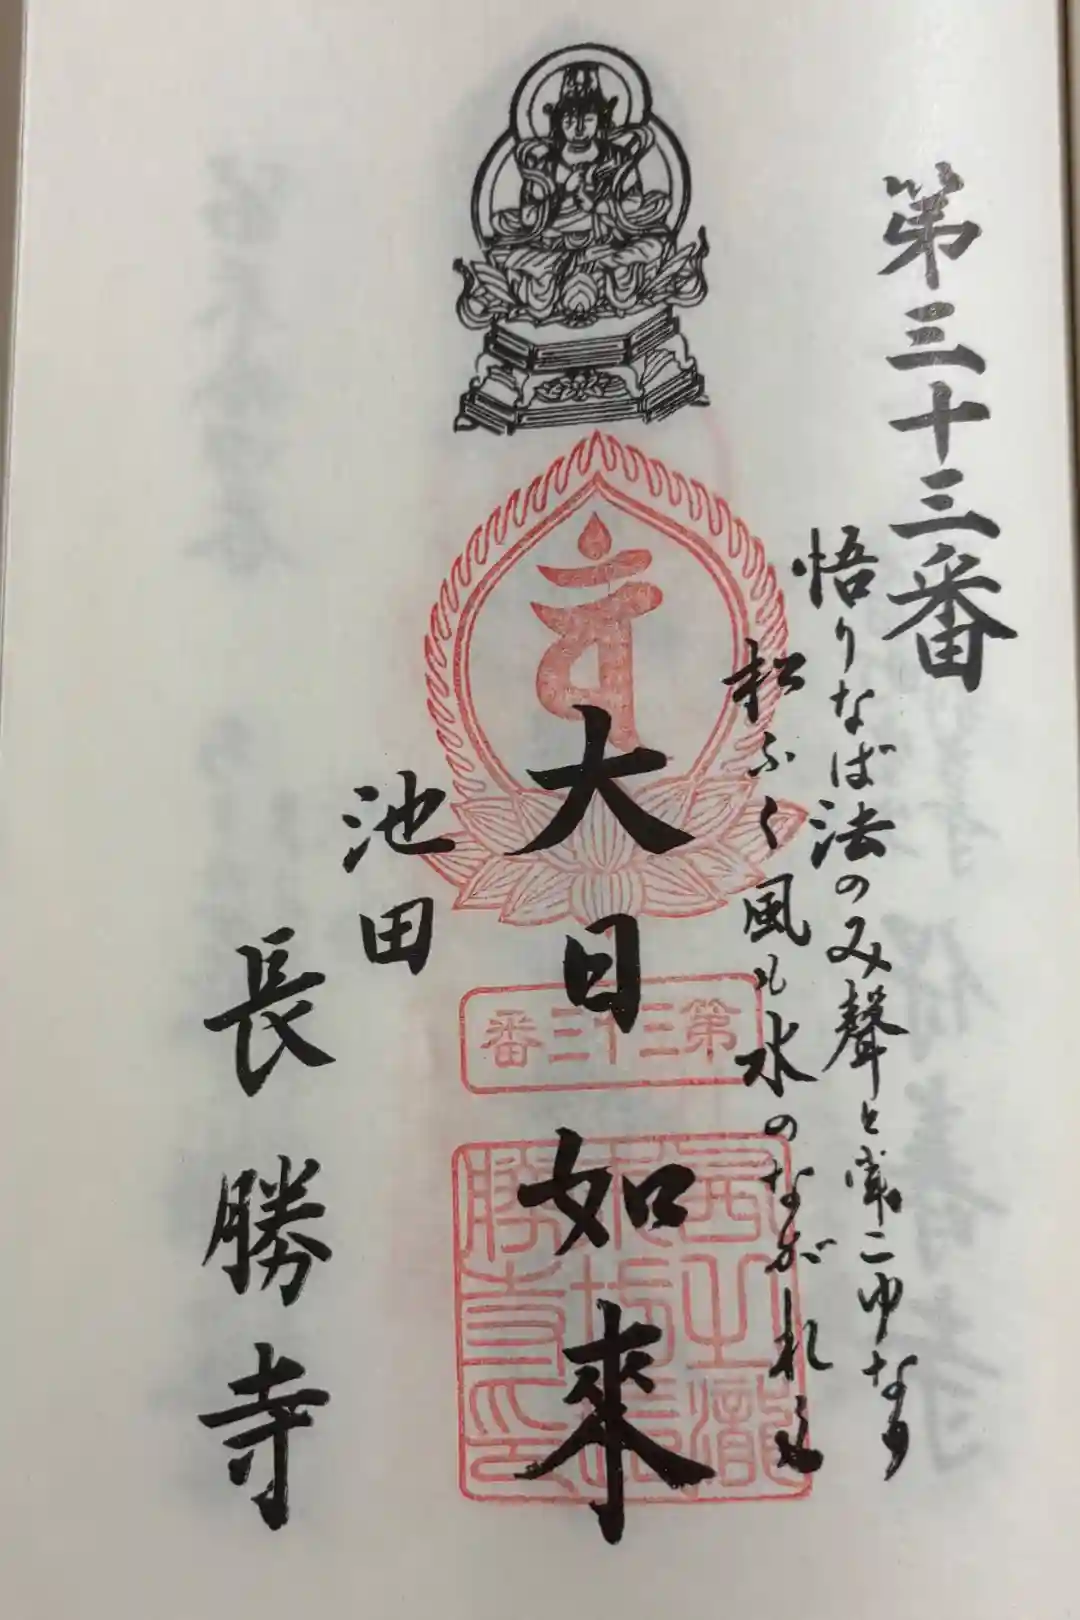 第三十三番
悟りなば法のみ聲と常にゆなり
松ふく風も水のながれも
大日如來
池田
長勝寺
第三十三番